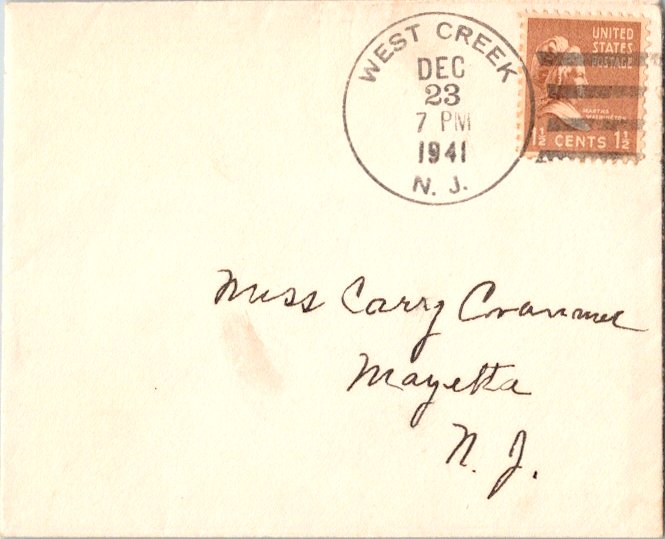 WEST CREEK
DEC
23
7 PM
1941
N. J.
UNITED
STATES
POSTAGE
MARTHA
WASHINGTON
1½ CENTS 1½
Miss Carry Cranmer
Mayetta
N. J.